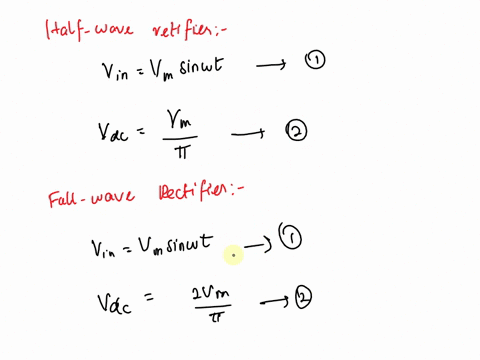 Half-wave retifier:-
Vin = Vm sinωt → ①
Vdc = Vm/π → ②
Full-wave Rectifier:-
Vin = Vm sinωt → ①
Vdc = 2Vm/π → ②